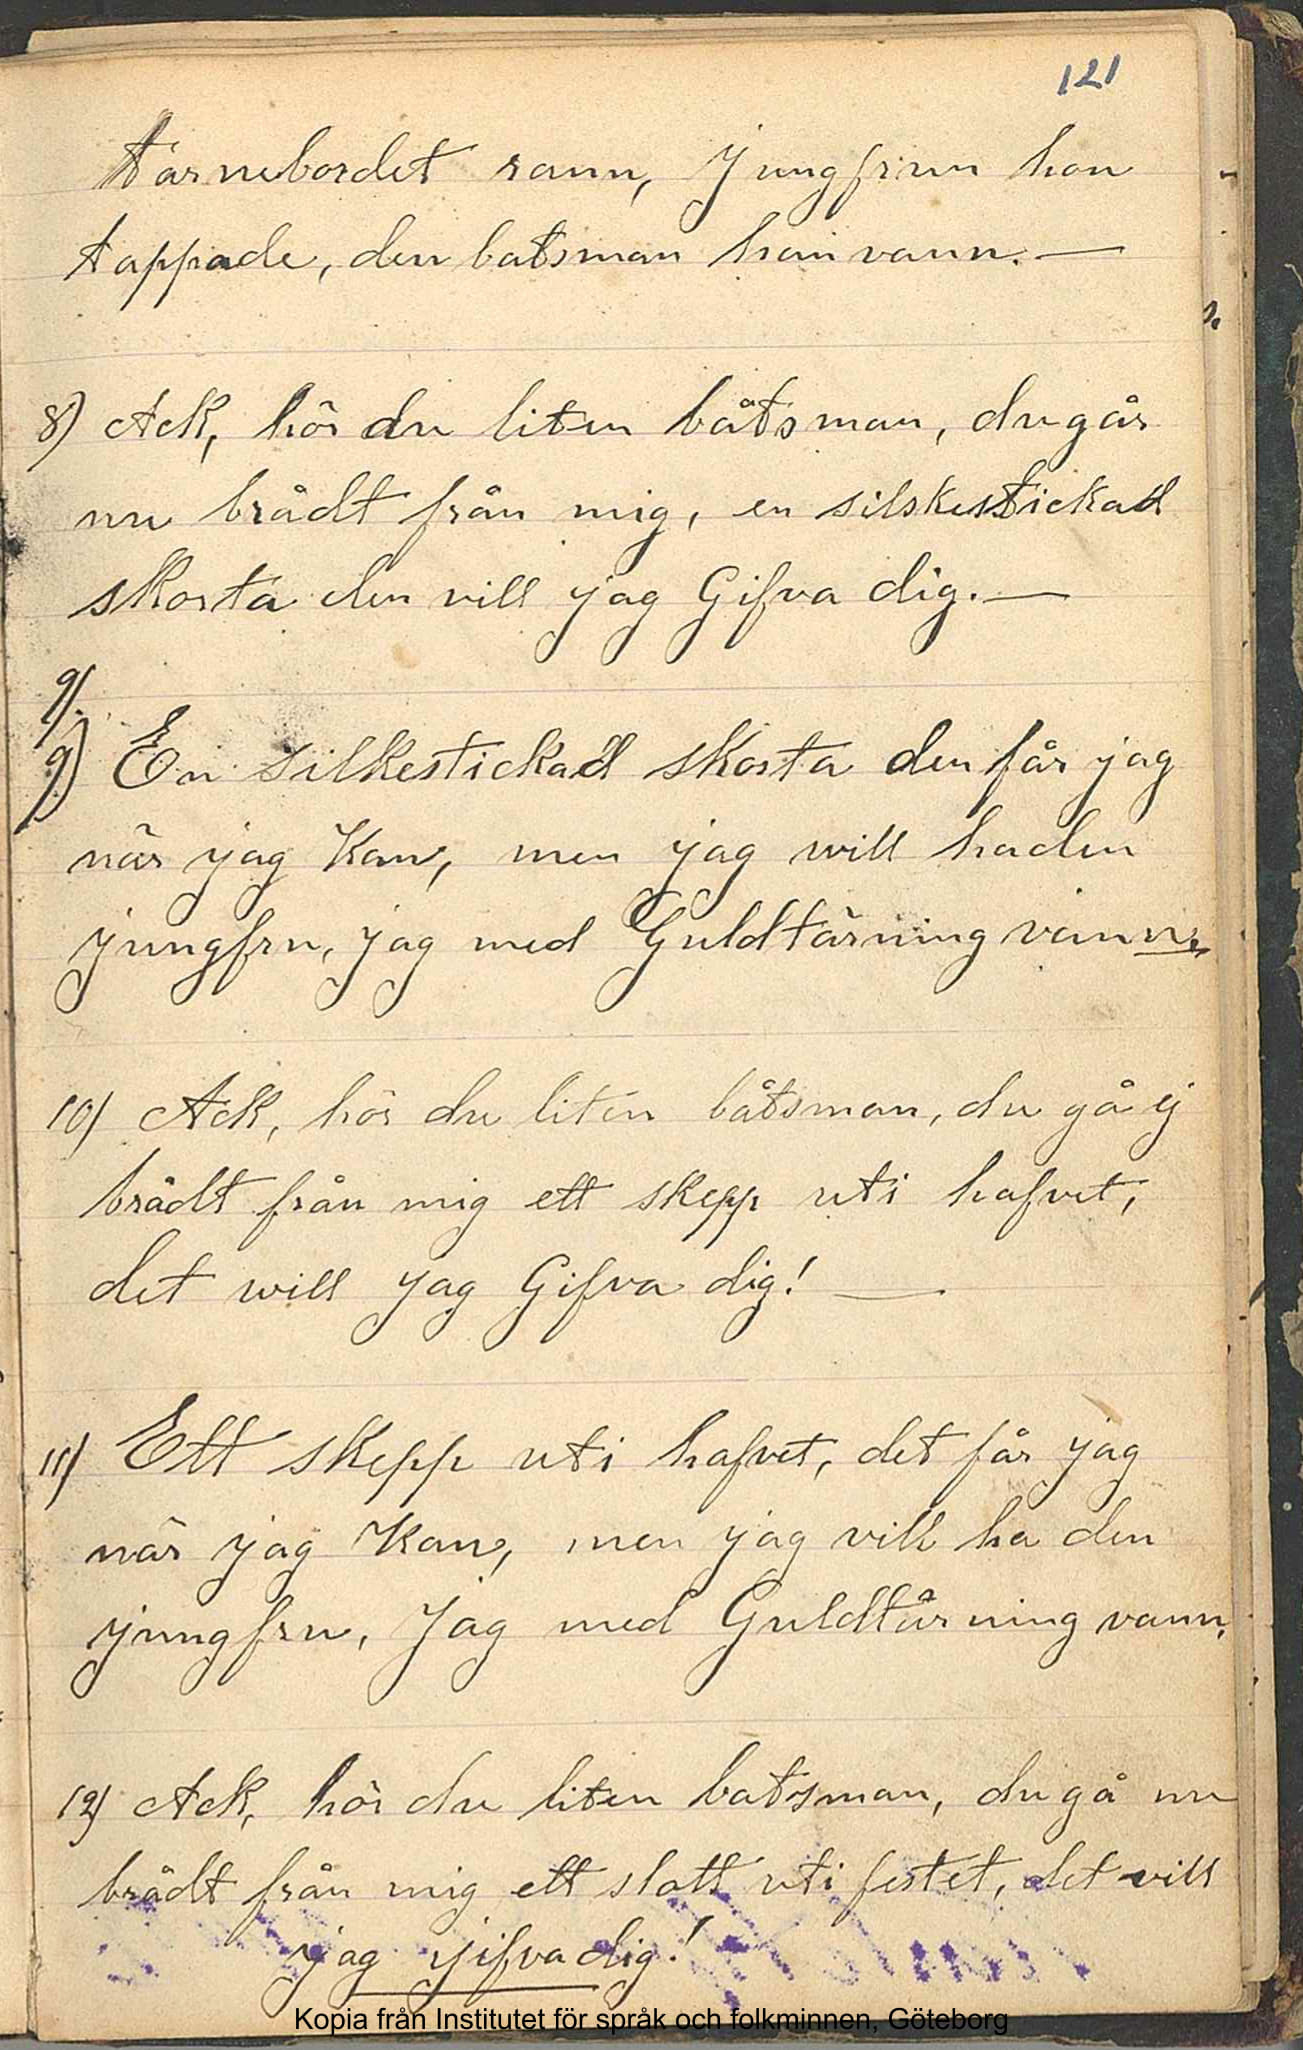 121
tarnebordet rann, Jungfrun hon
tappade, den batsman han vann. —
8) Ack, hör du liten båtsman, du går
nu brådt från mig, en silskestickad
skorta den vill jag Gifva dig. —
9).
9) En silkestickad skorta den får jag
när jag Kan, men jag will ha den
jungfru, jag med Guldtärning vann.
10) Ack, hör du liten båtsman, du gå ej
brådt från mig ett skepp uti hafvet,
det will jag Gifva dig! —
11) Ett skepp uti hafvet, det får jag
när jag Kan, men jag vill ha den
jungfru, Jag med Guldtärning vann.
12) Ack, hör du liten batsman, du gå nu
brådt från mig ett slott uti festet, det vill
jag gifva dig!
Kopia från Institutet för språk och folkminnen, Göteborg